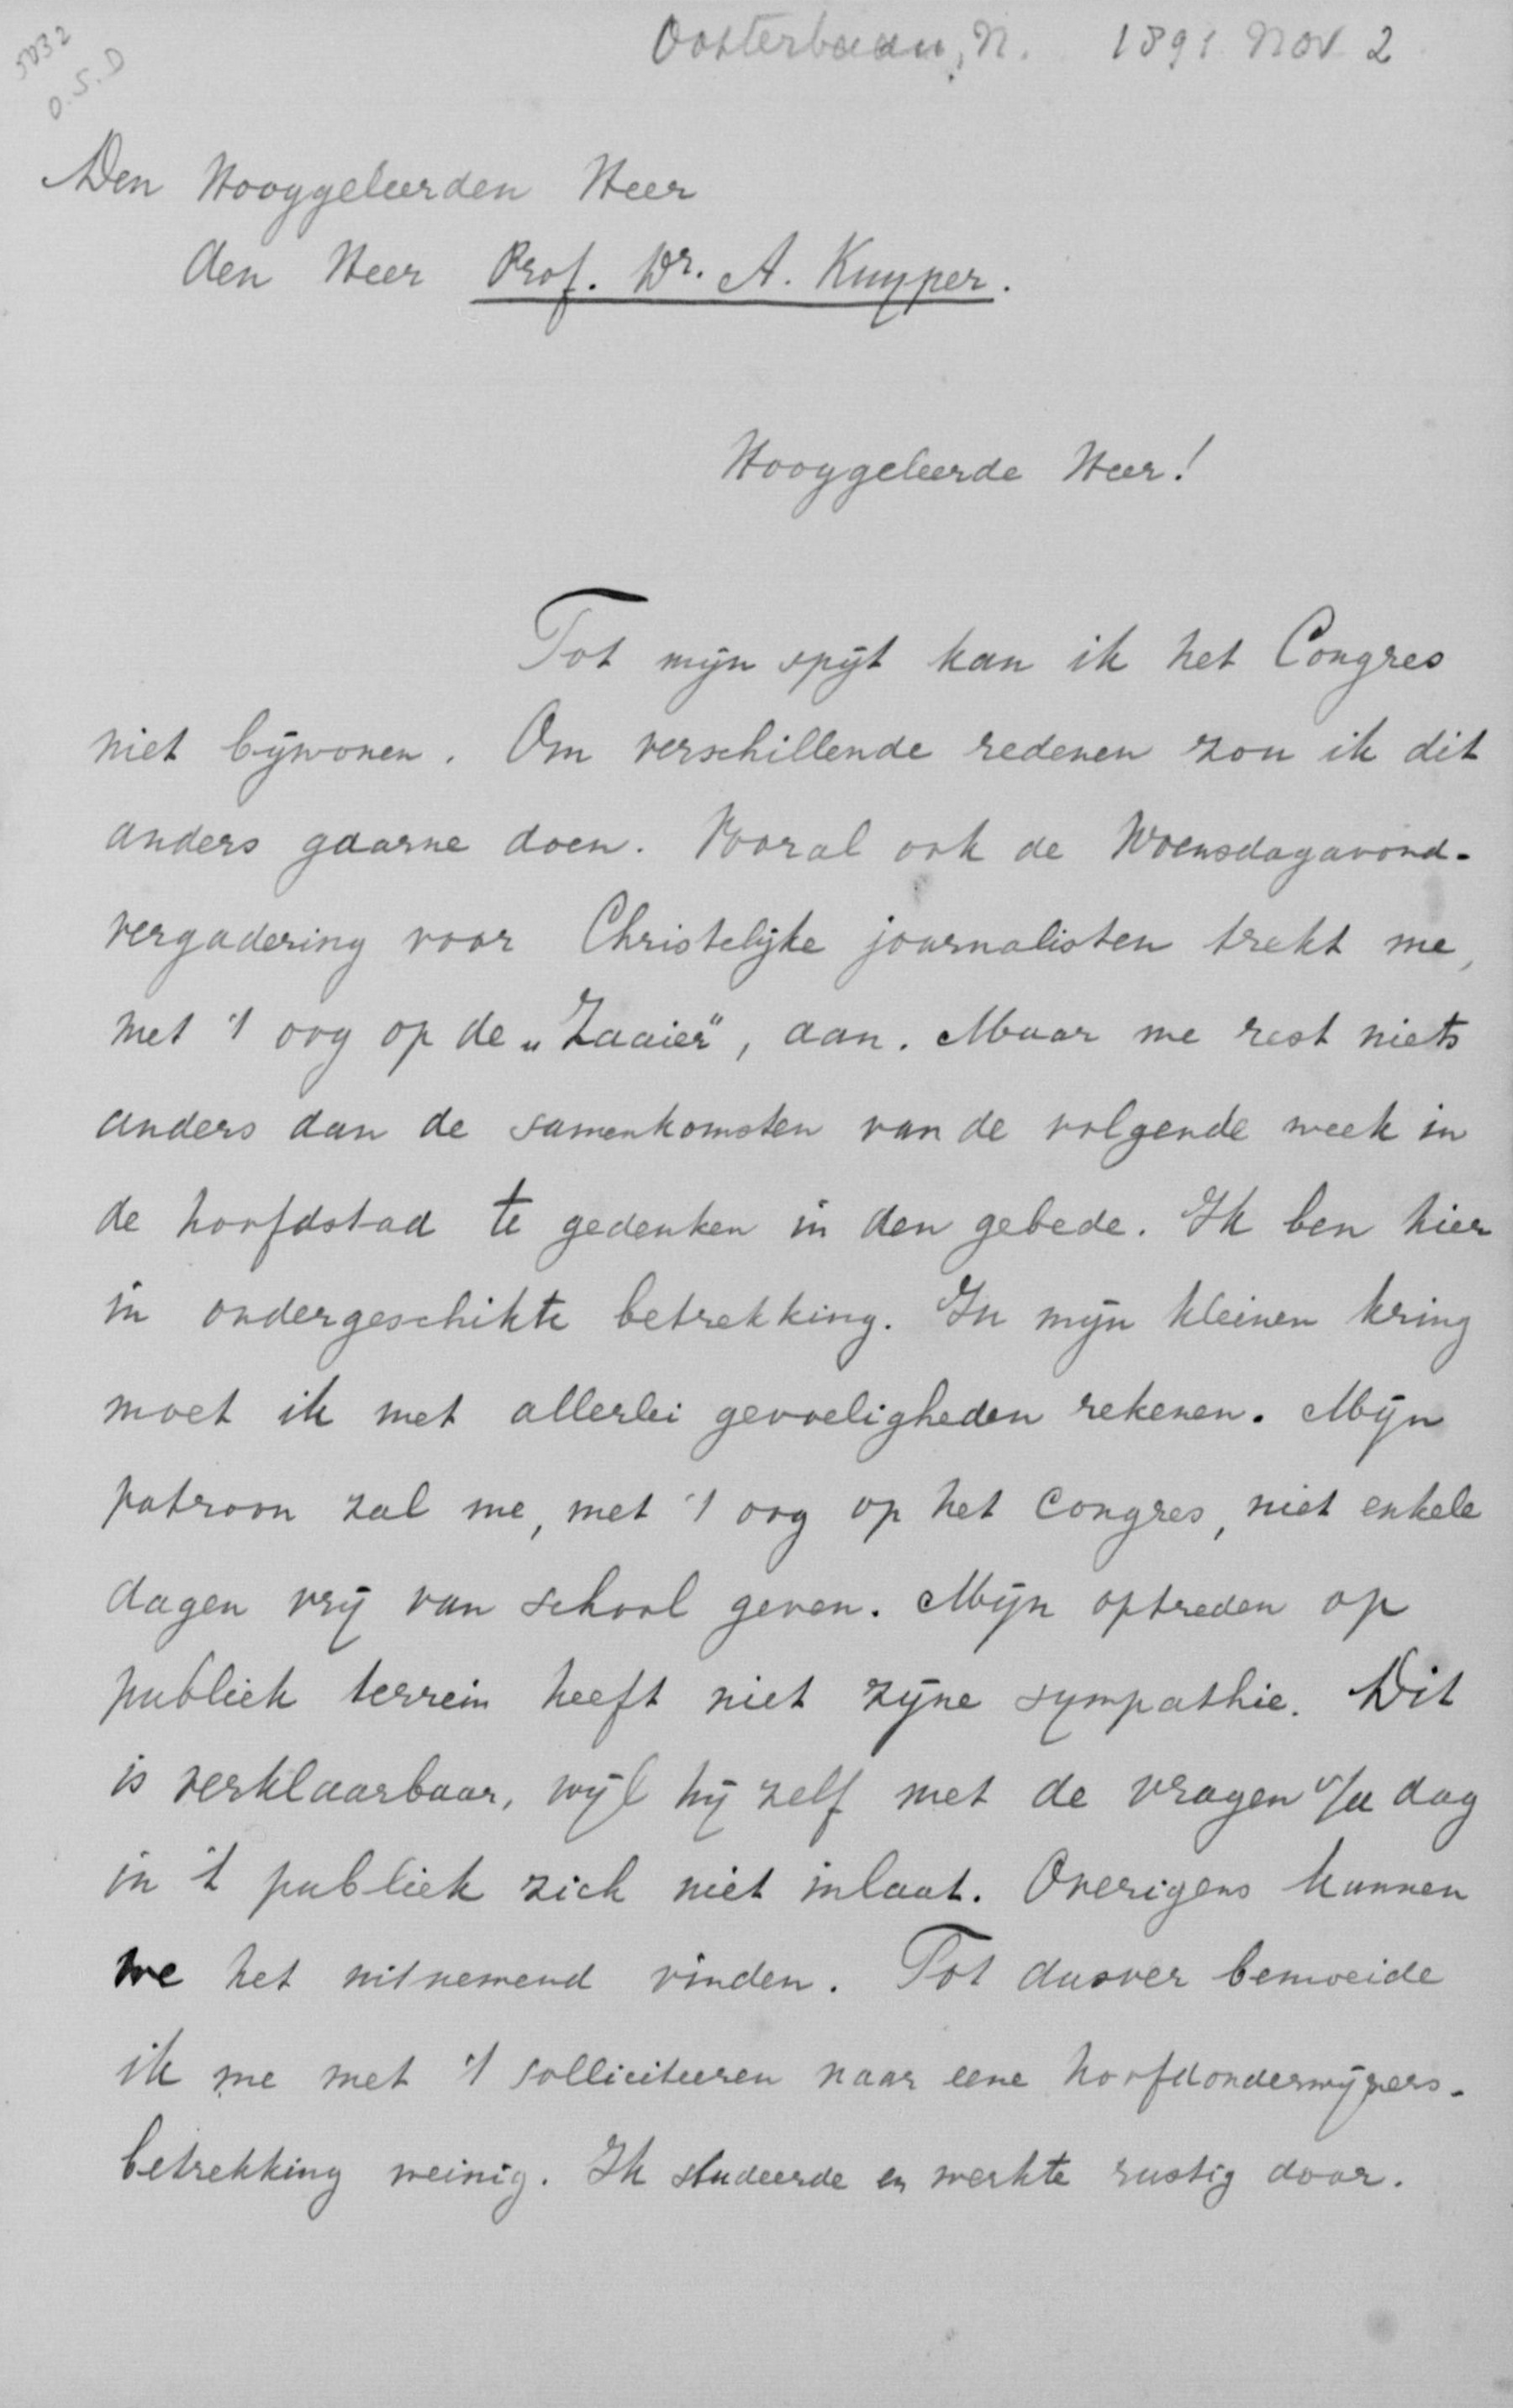 5032
O.S.D
Oosterbaan, N. 1891 Nov 2
Den Hooggeleerden Heer
den Heer Prof. Dr. A. Kuyper.
Hooggeleerde Heer!
Tot mijn spijt kan ik het Congres
niet bijwonen. Om verschillende redenen zou ik dit
anders gaarne doen. Vooral ook de Woensdagavond-
vergadering voor Christelijke journalisten trekt me,
met 't oog op de „Zaaier", aan. Maar me rest niets
anders dan de samenkomsten van de volgende week in
de hoofdstad te gedenken in den gebede. Ik ben hier
in ondergeschikte betrekking. In mijn kleinen kring
moet ik met allerlei gevoeligheden rekenen. Mijn
patroon zal me, met 't oog op het congres, niet enkele
dagen vrij van school geven. Mijn optreden op
publiek terrein heeft niet zijne sympathie. Dit
is verklaarbaar, wijl hij zelf met de vragen v/d dag
in 't publiek zich niet inlaat. Overigens kunnen
we het uitnemend vinden. Tot dusver bemoeide
ik me met 't solliciteeren naar eene hoofdonderwijzers-
betrekking weinig. Ik studeerde en werkte rustig door.